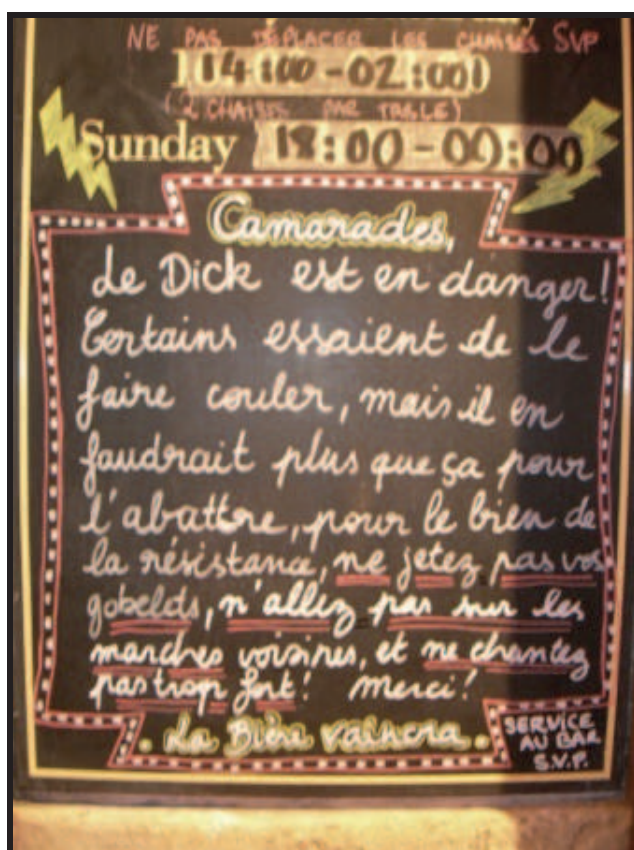 NE PAS DÉPLACER LES CHAISES SVP
14:00-02:00
(2 CHAISES PAR TABLE)
Sunday 18:00-00:00
Camarades,
Le Dick est en danger!
Certains essaient de le
faire couler, mais il en
faudrait plus que ça pour
l'abattre, pour le bien de
la résistance, ne jetez pas vos
gobelets, n'allez pas sur les
marches voisines, et ne chantez
pas trop fort! Merci!
. La Bière vaincra .
SERVICE
AU BAR
S.V.P.